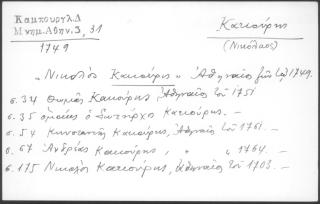 Καμπούρογλ. Δ
Μνημ. Αθην. 3, 31
1749
Κακούρης
(Νικόλαος)
"Νικολός Κακούρης" Ἀθηναῖος 1749.
σ. 34 Θωμᾶς Κακούρης Ἀθηναῖος τοῦ 1751
σ. 35 ὁμοίως ὁ Σωτήρχος Κακούρης. –
σ. 54 Κωνσταντῆς Κακούρης, Ἀθηναῖος τοῦ 1761. –
σ. 67 Ἀνδρέας Κακούρης, " " 1764. –
σ. 175 Νικολός Κακούρης, Ἀθηναῖος τοῦ 1703. –